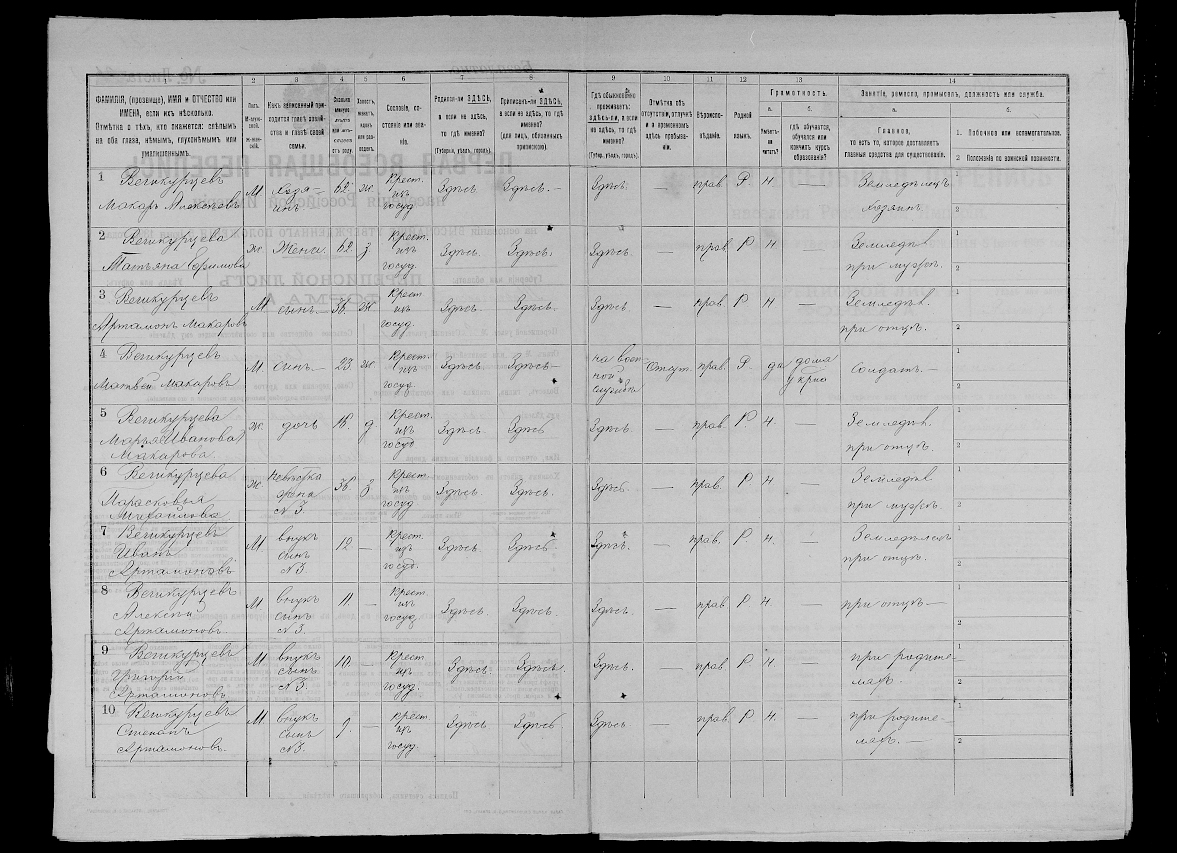 1 2 3 4 5 6 7 8 9 10 11 12 13 14
ФАМИЛІЯ, (прозвище), ИМЯ и ОТЧЕСТВО или ИМЕНА, если ихъ нѣсколько.
Отмѣтка о тѣхъ, кто окажется: слѣпымъ на оба глаза, нѣмымъ, глухонѣмымъ или умалишеннымъ.
Полъ.
Какъ записанный приходится главѣ хозяйства и главѣ своей семьи.
Сословіе, состояніе или званіе.
Родился-ли ЗДѢСЬ, а если не здѣсь, то гдѣ именно?
(Губернія, уѣздъ, городъ).
Приписанъ-ли ЗДѢСЬ, а если не здѣсь, то гдѣ именно?
(для лицъ, обязанныхъ припискою).
Гдѣ обыкновенно проживаетъ: здѣсь-ли, а если не здѣсь, то гдѣ именно?
(Губер. уѣздъ, городъ).
Отмѣтка объ отсутствіи, отлучкѣ и о временномъ здѣсь пребываніи.
Вѣроисповѣданіе.
Родной языкъ.
Грамотность.
а. Умѣетъ-ли читать?
б. гдѣ обучается, обучался или кончилъ курсъ образованія?
Занятіе, ремесло, промыселъ, должность или служба.
а. Главное,
то есть то, которое доставляетъ главныя средства для существованія.
б.
1. Побочное или вспомогательное.
2. Положеніе по воинской повинности.
1 Великурцевъ
Макаръ Алексѣевъ М хозяинъ 62 ж Крест. изъ госуд Здѣсь Здѣсь — Здѣсь — прав Р н — Земледѣлецъ хозяинъ
2 Великурцева
Татьяна Ефимова ж Жена 62 з Крест. изъ госуд. Здѣсь. Здѣсь. Здѣсь. — прав Р н — Земледѣл. при мужѣ.
3 Великурцевъ
Артамонъ Макаровъ М сынъ 36 ж Крест изъ госуд. Здѣсь. Здѣсь. Здѣсь. — прав Р н — Земледѣл. при отцѣ.
4 Великурцевъ
Матвѣй Макаровъ М. сынъ 23 ж Крест. изъ госуд. Здѣсь. Здѣсь на военной службѣ Отсут. прав. Р. да дома Солдатъ —
5 Великурцева
Марья (Иванова)
Макарова. ж. дочь 18. д Крест. изъ госуд Здѣсь. Здѣсь Здѣсь. — прав Р н — Земледѣл. при отцѣ.
6 Великурцева
Парасковья
Михайлова ж Невѣстка жена N 3. 36 з Крест. изъ госуд Здѣсь. Здѣсь. Здѣсь. — прав. Р н — Земледѣл при мужѣ.
7 Великурцевъ
Иванъ
Артамоновъ М. внукъ сынъ N3 12 — Крест. изъ госуд. Здѣсь. Здѣсь Здѣсь. — прав. Р. н. — Земледѣлецъ при отцѣ.
8 Великурцевъ
Алексѣй
Артамоновъ. М внукъ сынъ N 3. 11. — Крест. изъ госуд. Здѣсь. Здѣсь. Здѣсь. — прав Р н. — при отцѣ —
9 Великурцевъ
Григорій
Артамоновъ М внукъ сынъ N3. 10. — Крест изъ госуд. Здѣсь. Здѣсь. Здѣсь. — прав Р н — при родителяхъ.
10 Великурцевъ
Степанъ
Артамоновъ. М внукъ сынъ N3. 9. — Крест изъ госуд. Здѣсь Здѣсь Здѣсь — прав Р н. — при родителяхъ. —